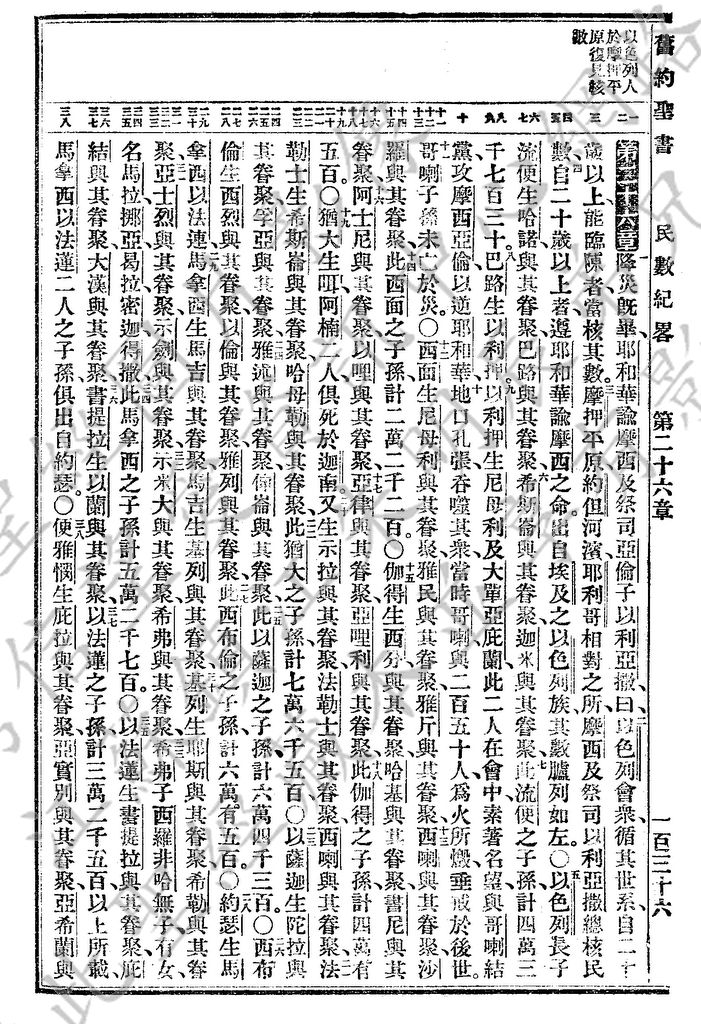 舊約聖書 民數紀畧 第二十六章 一百三十六
以色列人
於摩押平
原復見核
數
第二十六章 降災旣畢耶和華諭摩西及祭司亞倫子以利亞撒曰以色列會衆循其世系自二十
歲以上能臨陳者當核其數摩押平原約但河濱耶利哥相對之所摩西及祭司以利亞撒總核民
數自二十歲以上者遵耶和華諭摩西之命出自埃及之以色列族其數臚列如左〇以色列長子
流便生哈諾與其眷聚巴路與其眷聚希斯崙與其眷聚迦米與其眷聚此流便之子孫計四萬三
千七百三十巴路生以利押以利押生尼母利及大單亞庇蘭此二人在會中素著名望與哥喇結
黨攻摩西亞倫以逆耶和華地口孔張吞噬其衆當時哥喇與二百五十人爲火所燬垂戒於後世
哥喇子孫未亡於災〇西面生尼母利與其眷聚雅民與其眷聚雅斤與其眷聚西喇與其眷聚沙
羅與其眷聚此西面之子孫計二萬二千二百〇伽得生西分與其眷聚哈基與其眷聚書尼與其
眷聚阿士尼與其眷聚以哩與其眷聚亞律與其眷聚亞哩利與其眷聚此伽得之子孫計四萬有
五百〇猶大生咡亞楠二人俱死於迦南又生示拉與其眷聚法勒士與其眷聚西喇與其眷聚法
勒士生希斯崙與其眷聚哈母勒與其眷聚此猶大之子孫計七萬六千五百〇以薩迦生陀拉與
其眷聚孚亞與其眷聚雅述與其眷聚伸崙與其眷聚此以薩迦之子孫計六萬四千三百〇西布
倫生西烈與其眷聚以倫與其眷聚雅列與其眷聚此西布倫之子孫計六萬有五百〇約瑟生馬
拿西以法連馬拿西生馬吉與其眷聚馬吉生基列與其眷聚基列生耶斯與其眷聚希勒與其眷
聚亞士烈與其眷聚示劍與其眷聚示米大與其眷聚希弗與其眷聚希弗子西羅非哈無子有女
名馬拉挪亞曷拉密迦得撒此馬拿西之子孫計五萬二千七百〇以法蓮生書提拉與其眷聚庇
結與其眷聚大漢與其眷聚書提拉生以蘭與其眷聚以法蓮之子孫計三萬二千五百以上所載
馬拿西以法蓮二人之子孫俱出自約瑟〇便雅憫生庇拉與其眷聚亞實別與其眷聚亞希蘭與